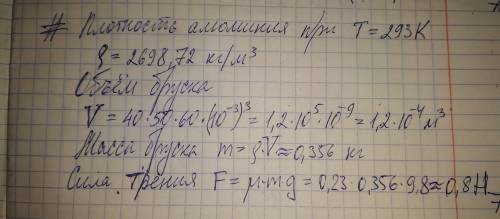 # Плотность алюминия при T = 293К
ρ = 2698,72 кг/м³
Объём бруска
V = 40·50·60·(10⁻³)³ = 1,2·10⁵·10⁻⁹ = 1,2·10⁻⁴ м³
Масса бруска m = ρV ≈ 0,356 кг
Сила трения F = μ·mg = 0,23·0,356·9,8 ≈ 0,8 Н